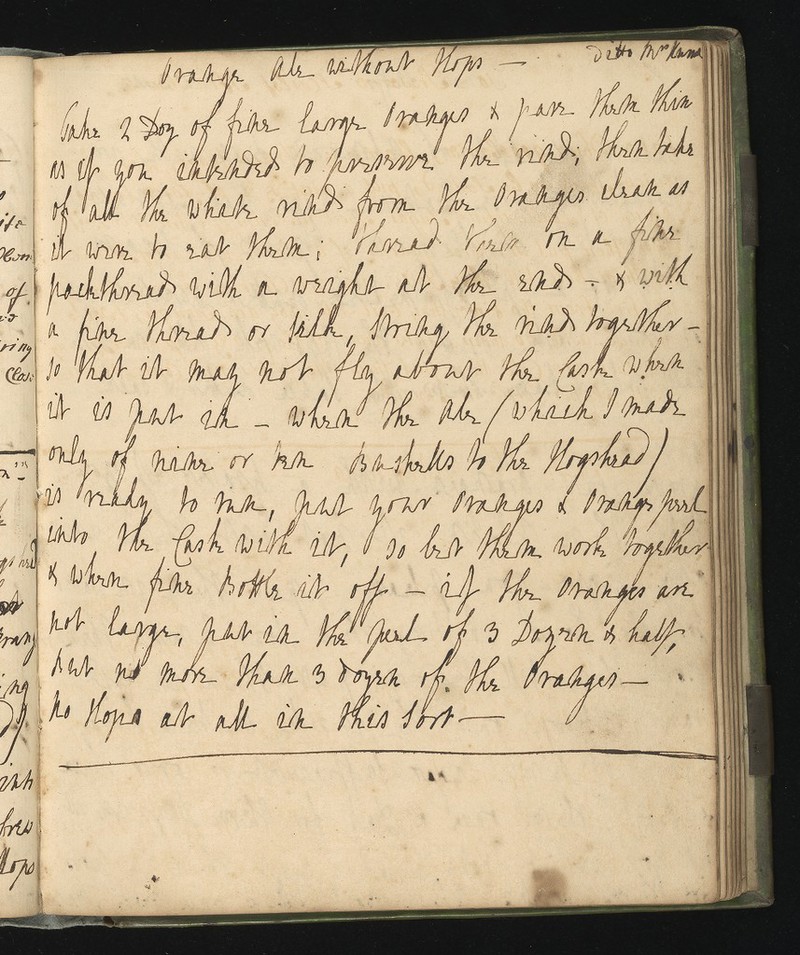 Orange Ale without Hops —
Ditto Mrs
Take 2 Doz of fine large Oranges & pare them thin
as if you intended to preserve the rind; then take
of all the white rind from the Oranges clean as
it were to eat them; thread them on a fine
packthread with a weight at the end - & with
a fine thread or silk, string the rind together -
so that it may not fly about the Cask when
it is put in - when the Ale (which I made
only of nine or ten Bushells to the Hogshead)
is ready to tun, put your Oranges & Orange peel
into the Cask with it, so let them work together
& when fine Bottle it off - if the Oranges are
not large, put in the peel of 3 Dozen & half,
but no more than 3 dozen of the Oranges —
No Hops at all in this sort —
of
Hops